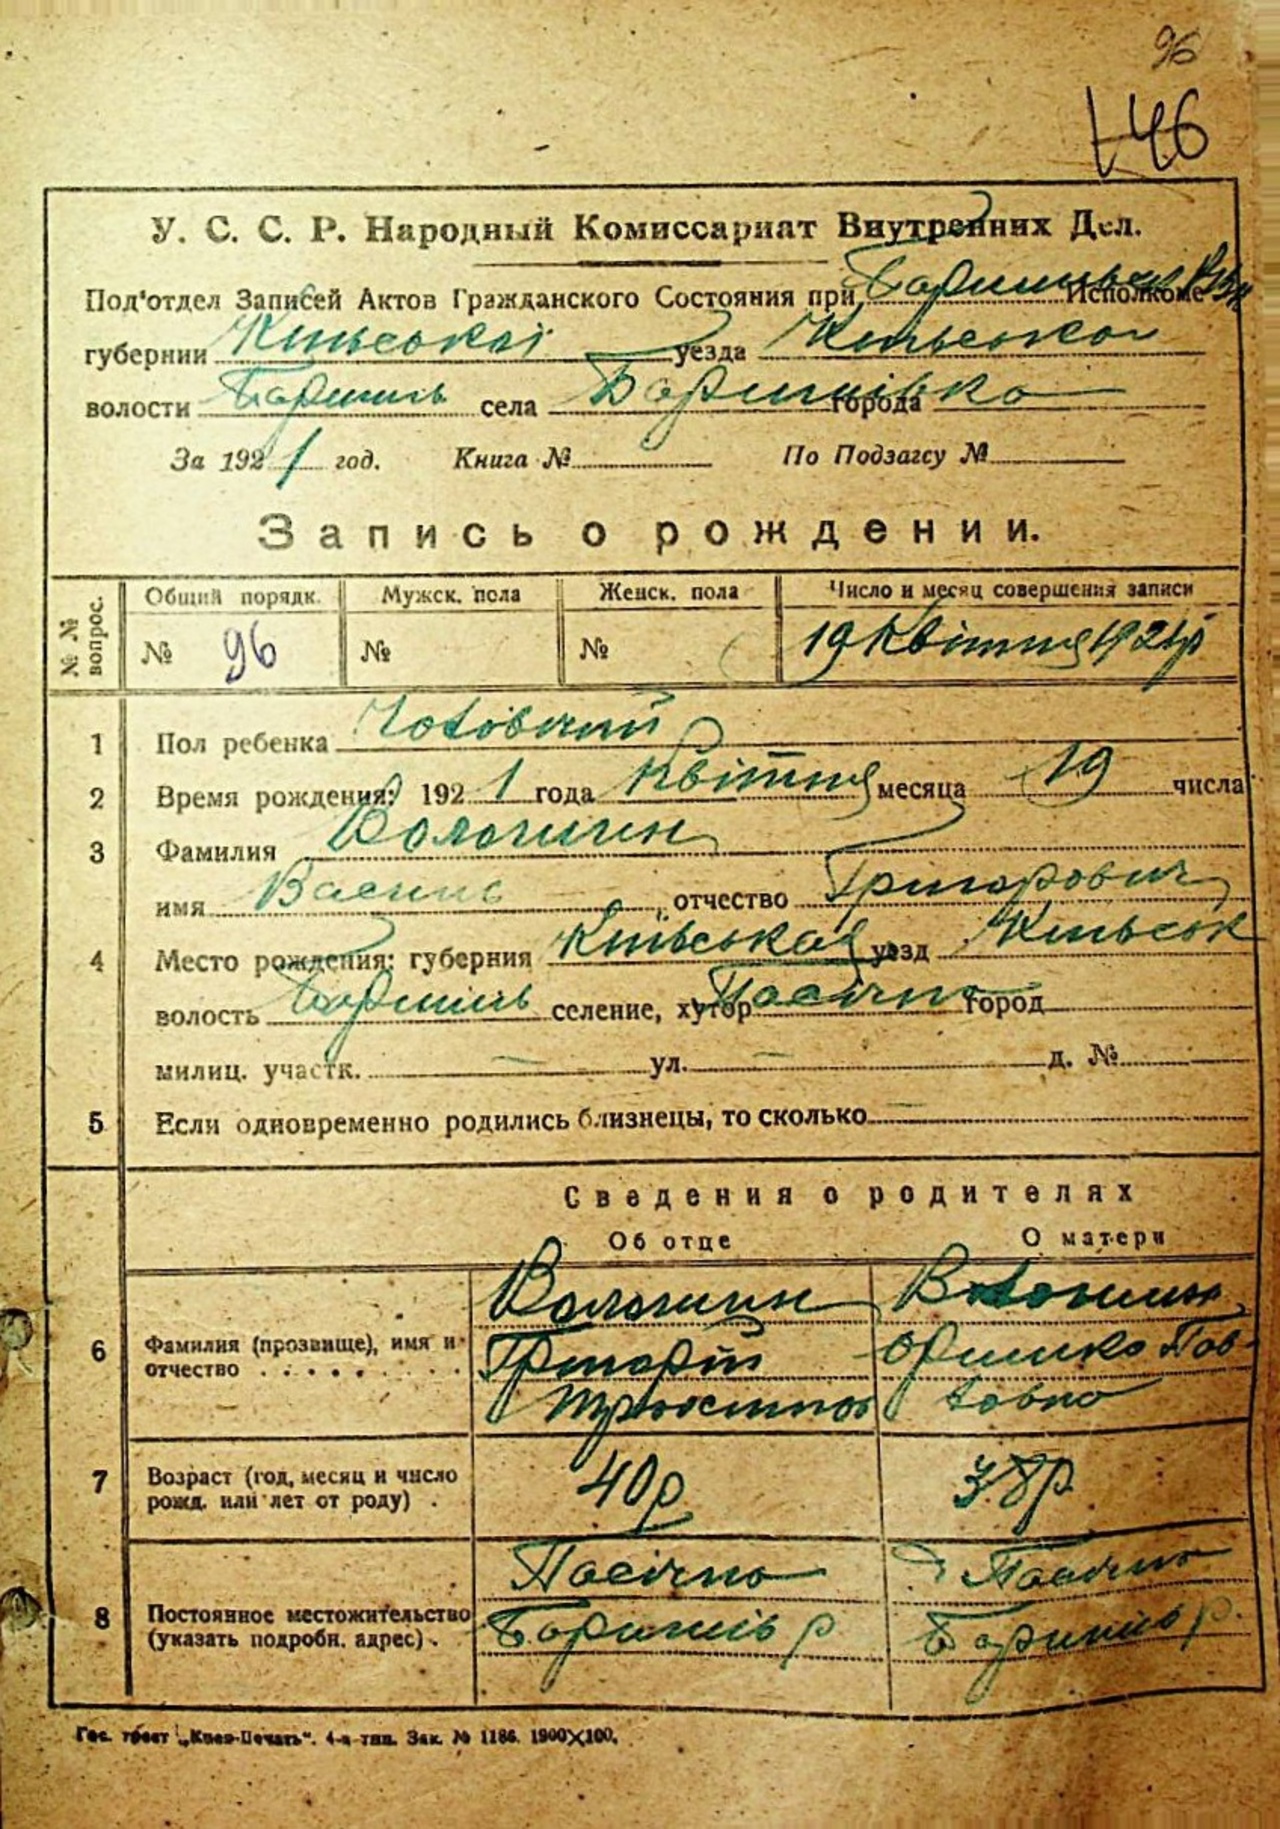 96
46
У. С. С. Р. Народный Комиссариат Внутренних Дел.
Под'отдел Записей Актов Гражданского Состояния при Исполкоме
губернии Київської уезда Київсько
волости Баришів села Баришівка города
За 1921 год. Книга № По Подзагсу №
Запись о рождении.
№ № вопрос. Общий порядк. Мужск. пола Женск. пола Число и месяц совершения записи
№ 96 № № 19 Квітня 1921 р
1 Пол ребенка Чоловічий
2 Время рождения: 1921 года Квітня месяца 19 числа
3 Фамилия Волошин
имя Василь отчество Григорович
4 Место рождения: губерния Київськая уезд Київськ
волость Баришів селение, хутор Пасічна город
милиц. участк. – ул. – д. №
5 Если одновременно родились близнецы, то сколько –
Сведения о родителях
Об отце О матери
6 Фамилия (прозвище), имя и отчество Волошин Волошин
Григорій Оришка Пав-
ловна
7 Возраст (год, месяц и число рожд. или лет от роду) 40 р 38 р.
8 Постоянное местожительство (указать подробн. адрес) Пасічна Пасічна
Баришів р Баришів р.
Гос. трест „Киев-Печать“. 4-я тип. Зак. № 1186. 1900×100.